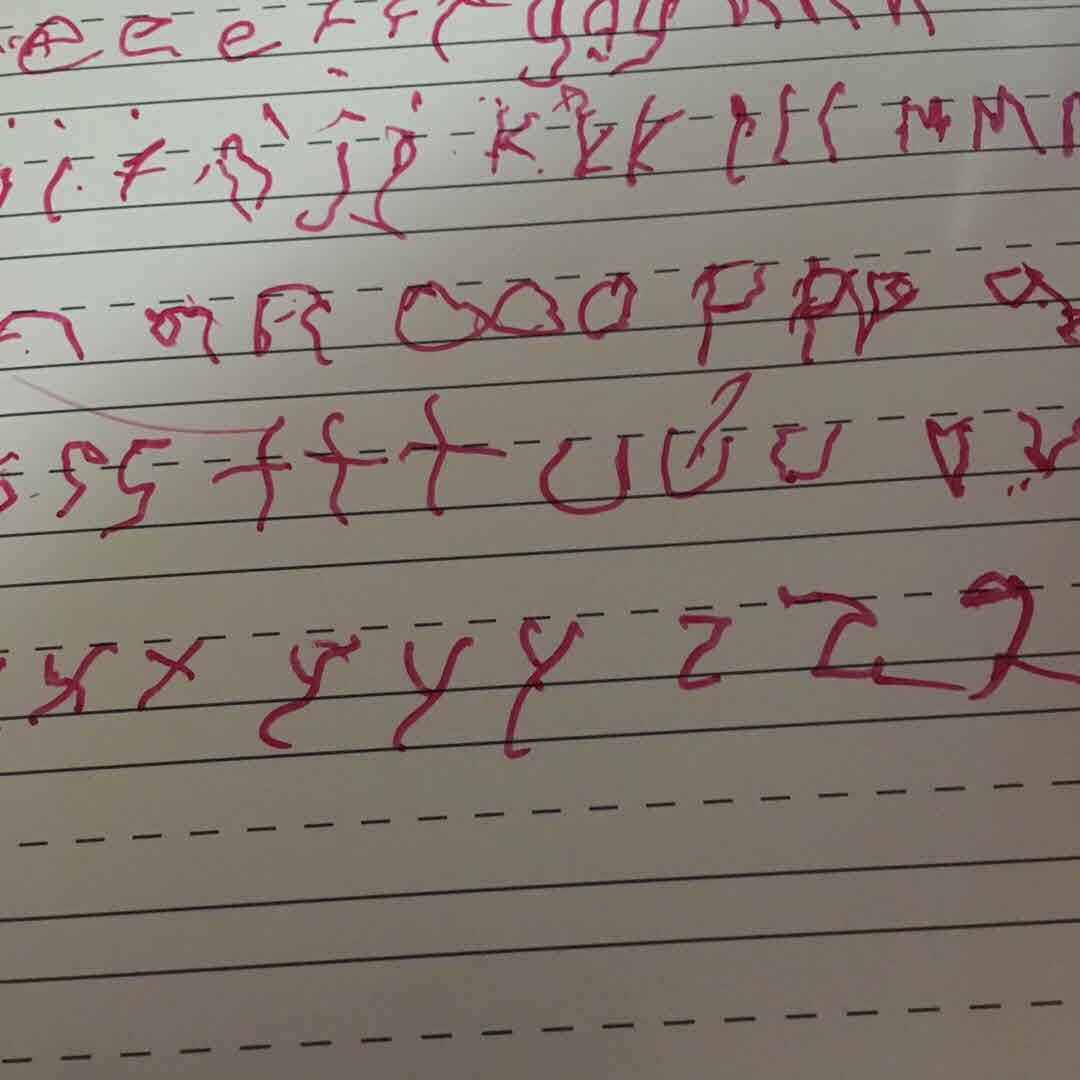 e e e f f f g g g h h h
i i i j j j k k k l l l m m m
n n n o o o p p p q
s s s t t t u u u v v
x x x y y y z z z